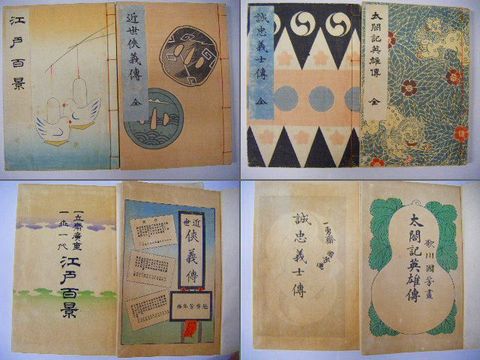 江戸百景
近世俠義傳
全
誠忠義士傳
全
太閤記英雄傳
全
一立齋廣重
一世一代
江戸百景
近世
俠義傳
一勇齋
誠忠義士傳
歌川國芳畫
太閤記英雄傳